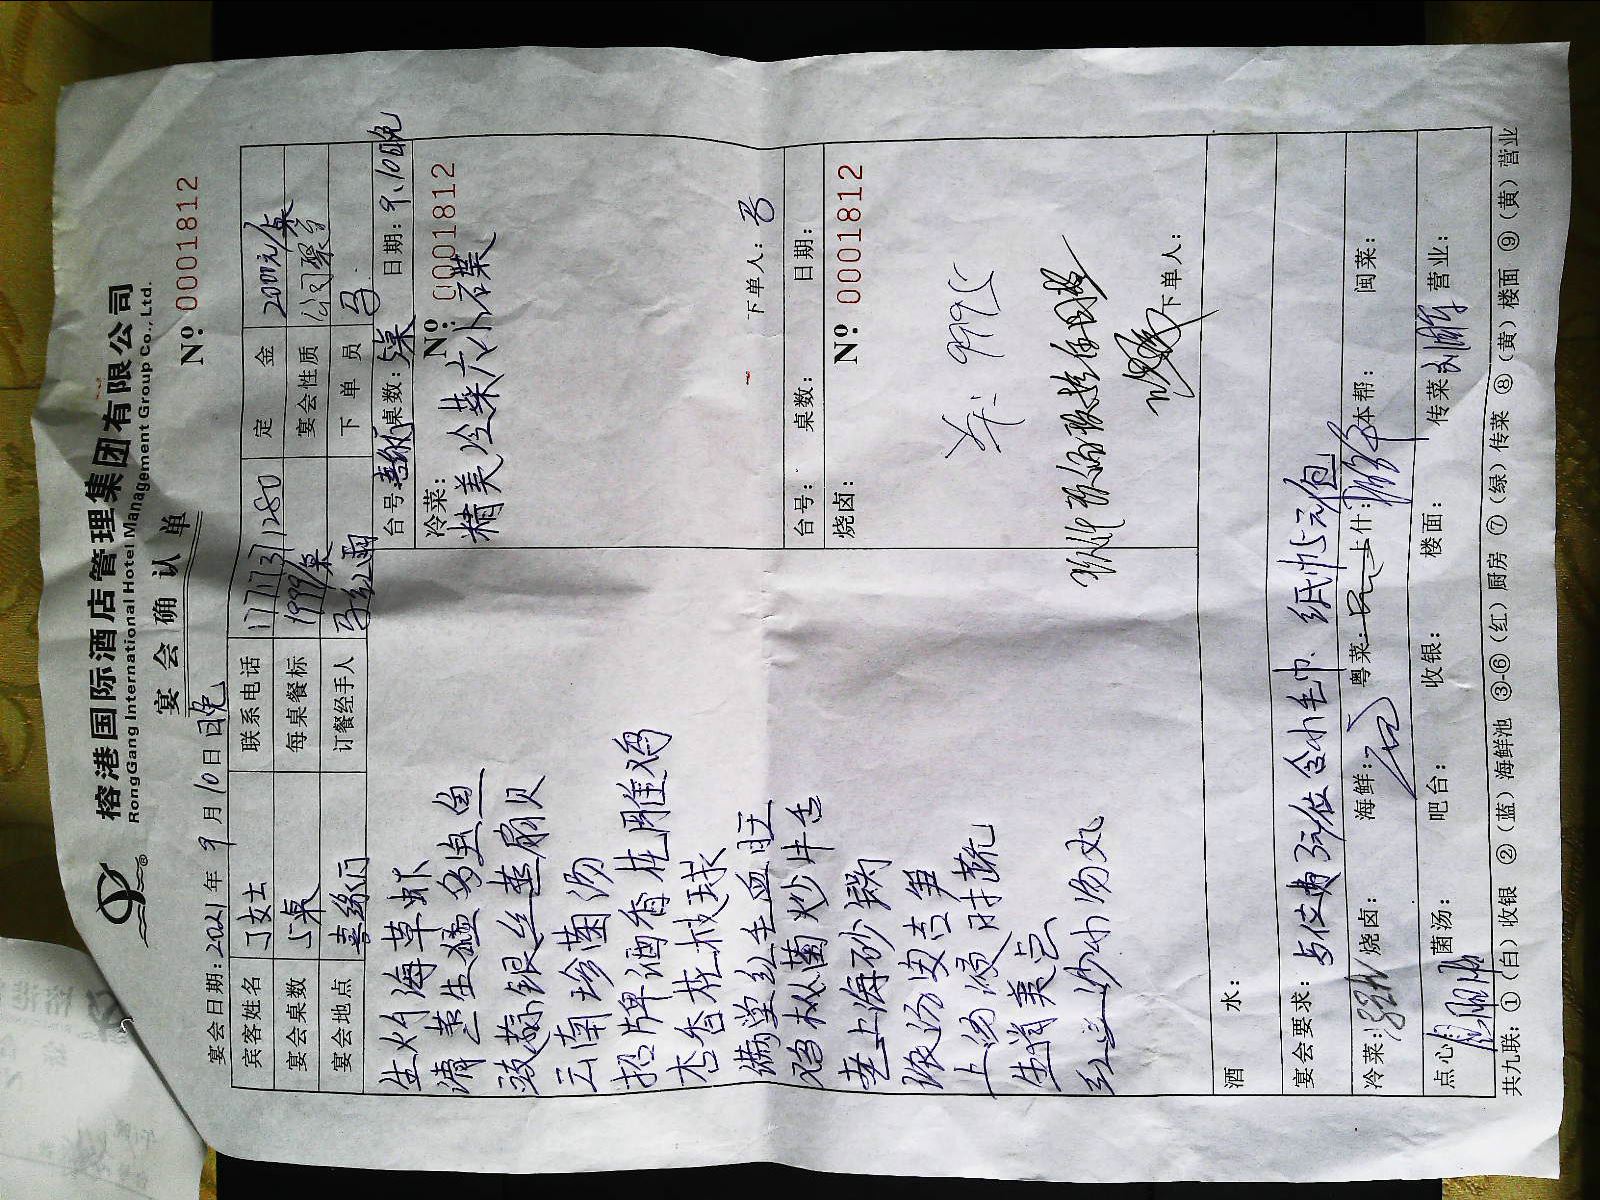 榕港国际酒店管理集团有限公司
RongGang International Hotel Management Group Co., Ltd.
宴会确认单
宴会日期: 2021年 9月 10日晚 Nº 0001812
宾客姓名 丁女士 联系电话 17717131280 定金 2000元/桌
宴会桌数 5桌 每桌餐标 1999/桌 宴会性质 公司聚会
宴会地点 喜纷厅 订餐经手人 下单员
台号: 喜纷厅 桌数: 5桌 日期: 9.10日晚
冷菜: Nº: 0001812
精美冷菜六小碟
下单人:
生灼海草虾
清蒸生猛多宝鱼
豉蒜银丝蒸扇贝
云南珍菌汤
招牌酒香花雕鸡
杏香荔枝球
满堂红毛血旺
鸡枞菌炒牛舌
老上海砂锅
浓汤安吉笋
上汤浸时蔬
生煎
小汤丸
台号: 桌数: 日期:
烧卤: Nº 0001812
共: 9995
下单人:
酒水:
宴会要求: 小毛巾、纸巾5元/包
冷菜: 烧卤: 海鲜: 粤菜: 上什: 本帮: 闽菜:
点心: 菌汤: 吧台: 收银: 楼面: 传菜 营业:
共九联: ①(白)收银 ②(蓝)海鲜池 ③-⑥(红)厨房 ⑦(绿)传菜 ⑧(黄)楼面 ⑨(黄)营业